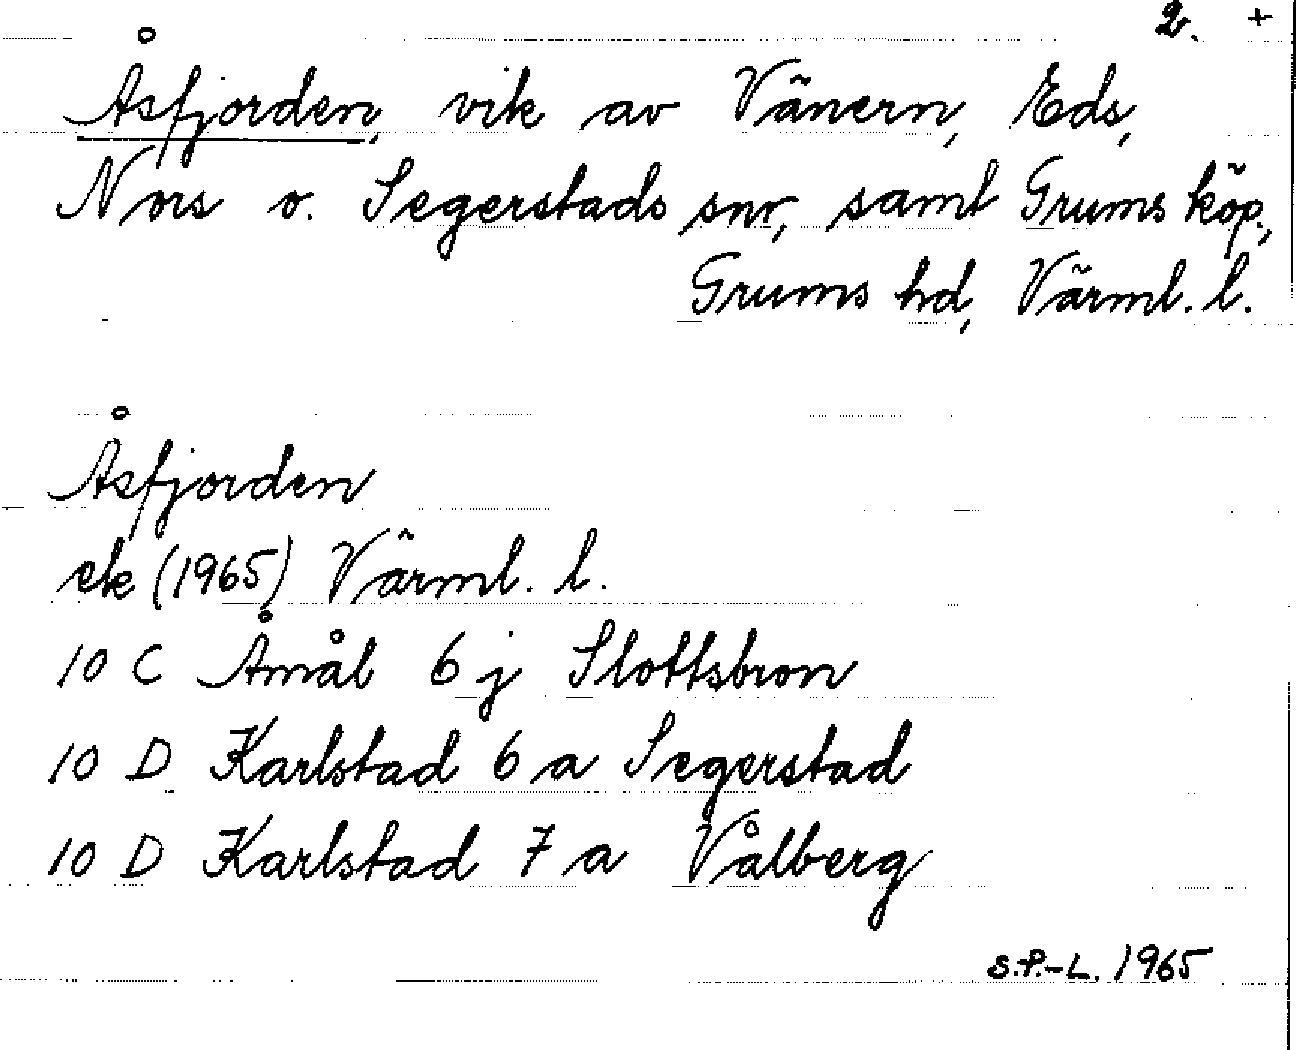 2. +
Åsfjorden, vik av Vänern, Eds,
Nors o. Segerstads snr, samt Grums köp.,
Grums hd, Värml. l.
Åsfjorden
ek (1965) Värml. l.
10 C Åmål 6 j Slottsbron
10 D Karlstad 6 a Segerstad
10 D Karlstad 7 a Vålberg
S.P.-L. 1965